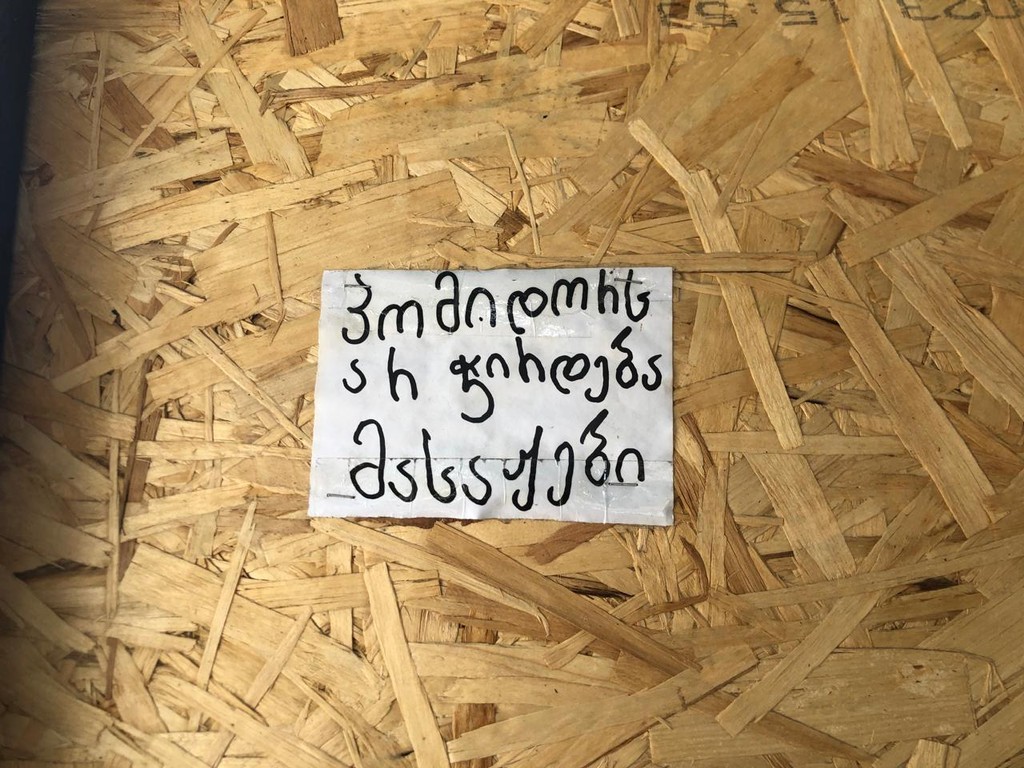 პომიდორს
არ ჭირდება
მასაჟები